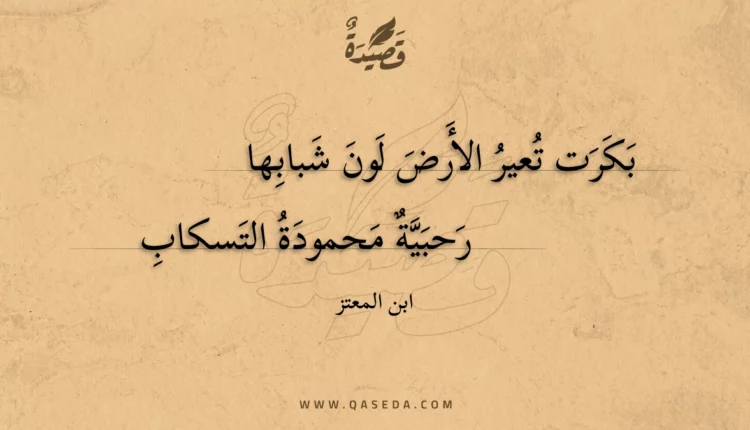 قَصِيدَةٌ
بَكَرَت تُعيرُ الأَرضَ لَونَ شَبابِها
رَحبَيَّةٌ مَحمودَةُ التَسكابِ
ابن المعتز
WWW.QASEDA.COM